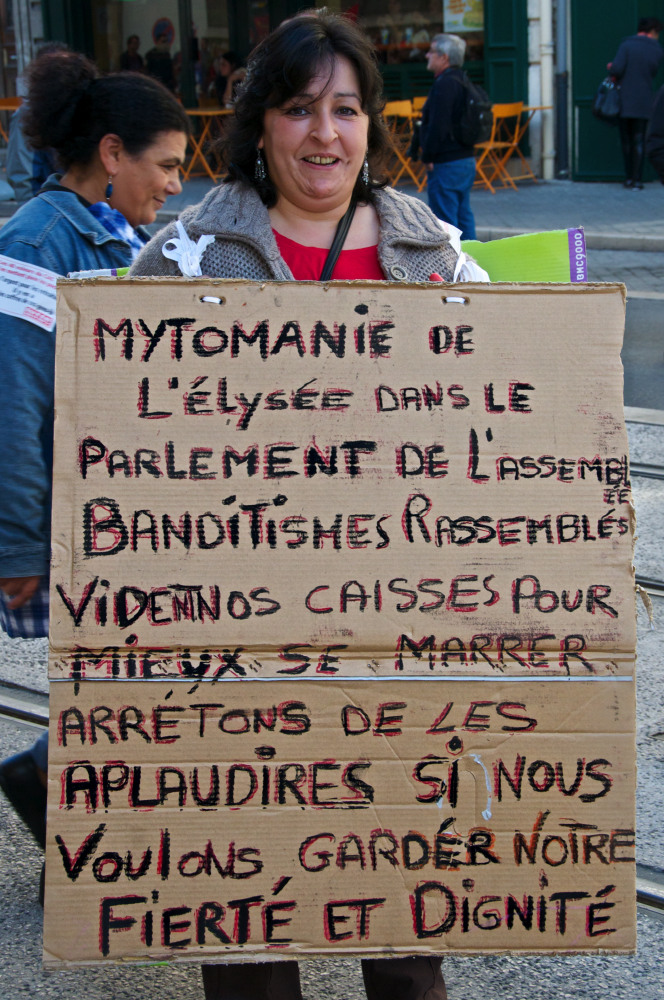 MYTOMANIE DE
L'ÉLYSÉE DANS LE
PARLEMENT DE L'ASSEMBLÉE
BANDITISMES RASSEMBLÉS
VIDENT NOS CAISSES POUR
MIEUX SE MARRER
ARRÉTONS DE LES
APLAUDIRES SI NOUS
VOULONS GARDÉR NOTRE
FIERTÉ ET DIGNITÉ
BMC9000